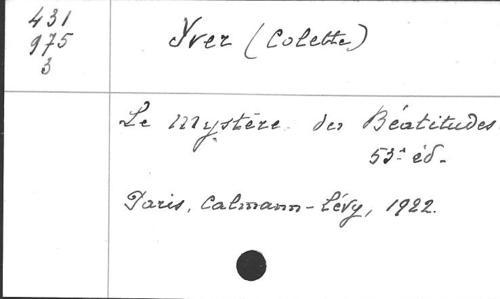 431
975
3
Yver (Colette)
Le Mystère des Béatitudes.
53e éd.
Paris, Calmann-Lévy, 1922.